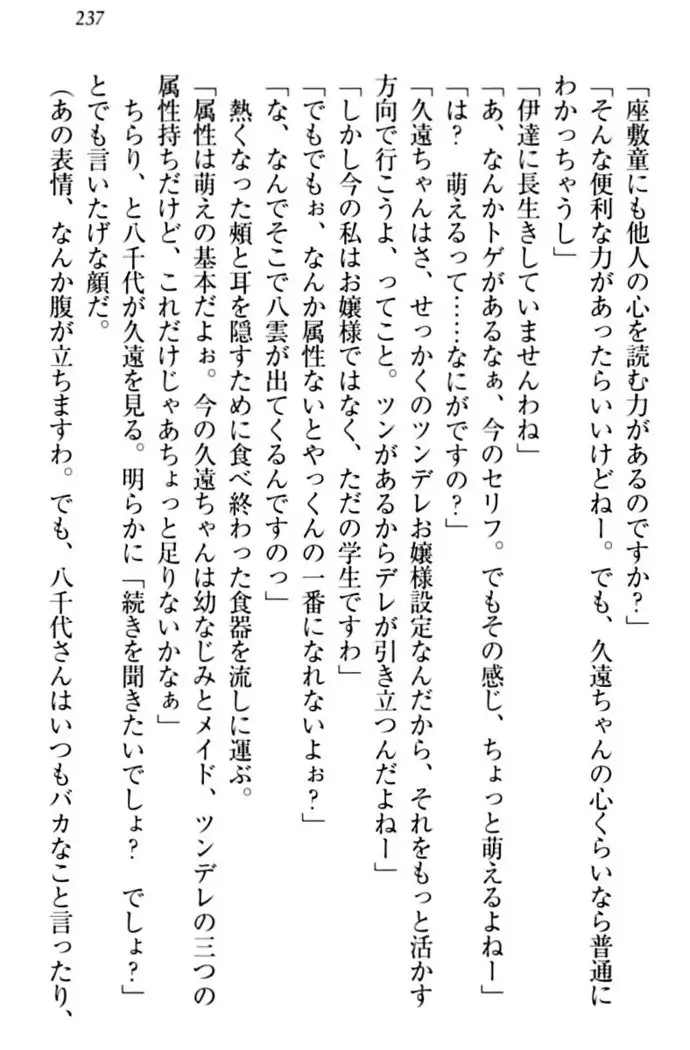 237
「座敷童にも他人の心を読む力があるのですか？」
「そんな便利な力があったらいいけどねー。でも、久遠ちゃんの心くらいなら普通に
わかっちゃうし」
「伊達に長生きしていませんわね」
「あ、なんかトゲがあるなぁ、今のセリフ。でもその感じ、ちょっと萌えるよねー」
「は？　萌えるって……なにがですの？」
「久遠ちゃんはさ、せっかくのツンデレお嬢様設定なんだから、それをもっと活かす
方向で行こうよ、ってこと。ツンがあるからデレが引き立つんだよねー」
「しかし今の私はお嬢様ではなく、ただの学生ですわ」
「でもでもぉ、なんか属性ないとやっくんの一番になれないよぉ？」
「な、なんでそこで八雲が出てくるんですのっ」
　熱くなった頰と耳を隠すために食べ終わった食器を流しに運ぶ。
「属性は萌えの基本だよぉ。今の久遠ちゃんは幼なじみとメイド、ツンデレの三つの
属性持ちだけど、これだけじゃあちょっと足りないかなぁ」
　ちらり、と八千代が久遠を見る。明らかに「続きを聞きたいでしょ？　でしょ？」
とでも言いたげな顔だ。
（あの表情、なんか腹が立ちますわ。でも、八千代さんはいつもバカなこと言ったり、